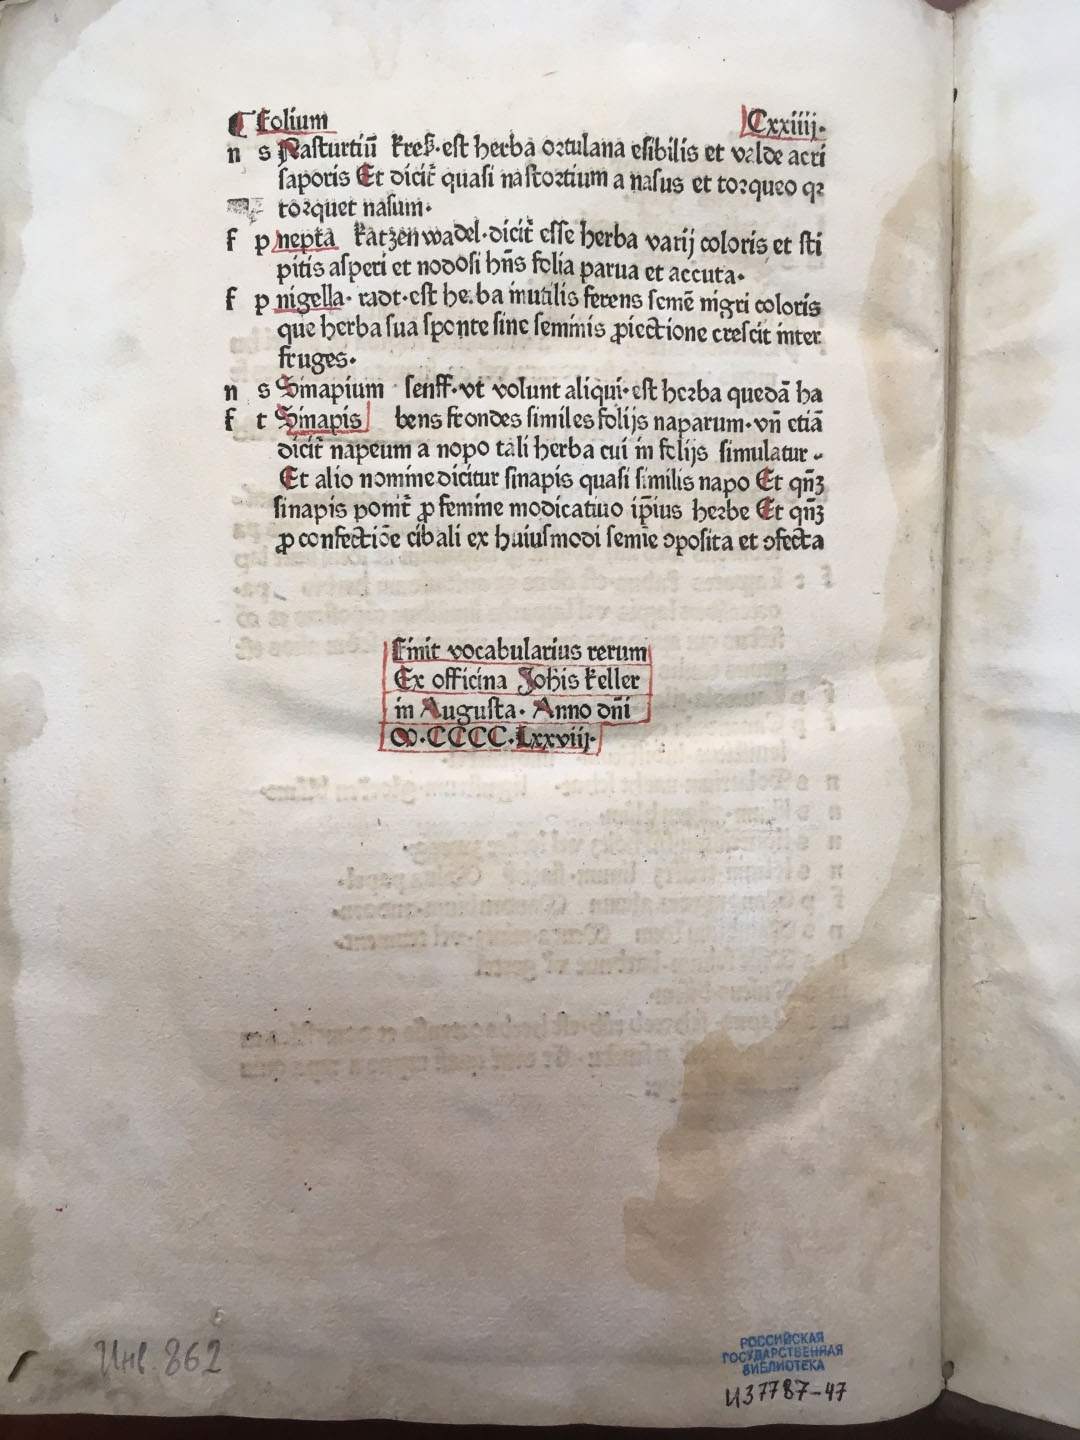 Folium Cxxiiij·
n s Nasturtiū kreß·est herba ortulana esibilis et valde acri
saporis Et dicit̄ quasi nastortium a nasus et torqueo qꝛ
torquet nasum·
f p nepta katzenwadel·dicit̄ esse herba varij coloris et sti
pitis asperi et nodosi hn̄s folia parua et accuta·
f p nigella· radt·est herba inutilis ferens semē nigri coloris
que herba sua sponte sine seminis ꝓiectione crescit inter
fruges·
n s Sinapium senff·vt volunt aliqui·est herba quedā ha
f t Sinapis bens frondes similes folijs naparum·vn̄ etiā
dicit̄ napeum a nopo tali herba cui in folijs simulatur
Et alio nomine dicitur sinapis quasi similis napo Et qn̄ꝫ
sinapis ponit̄ ꝓ semine modicatiuo ip̄ius herbe Et qn̄ꝫ
ꝓ confectiōe cibali ex huiusmodi semīe ꝯposita et ꝯfecta
Finit vocabularius rerum
Ex officina Joh̄is keller
in Augusta· Anno dn̄i
M·CCCC·Lxxviij·
Инв. 862
РОССИЙСКАЯ
ГОСУДАРСТВЕННАЯ
БИБЛИОТЕКА
И37787-47